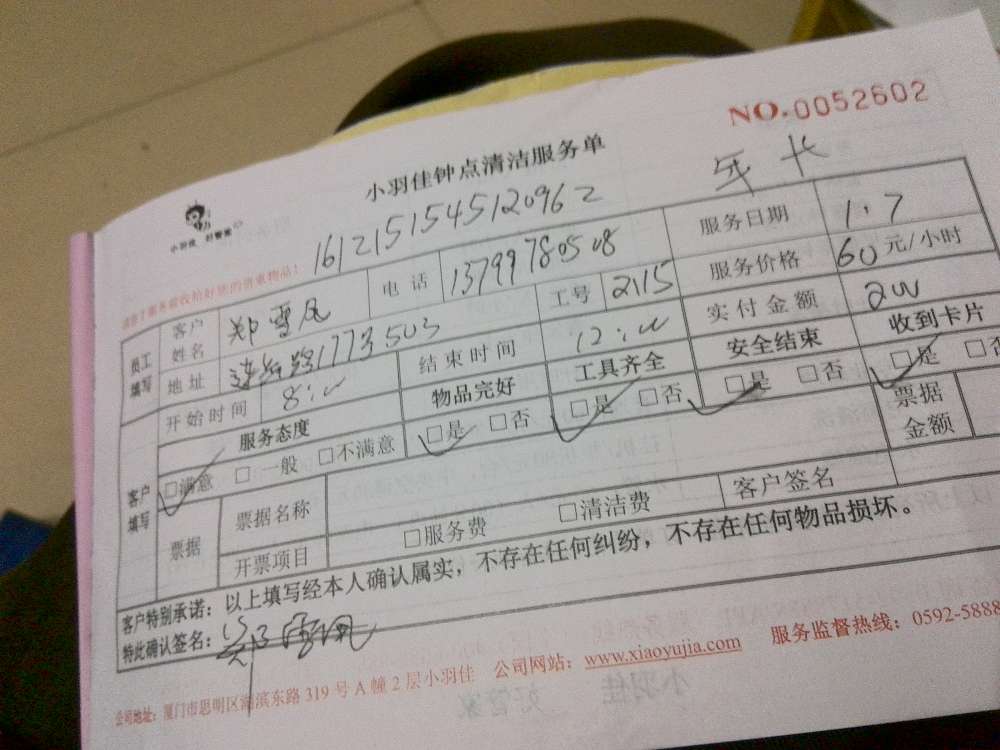 NO.0052602
小羽佳钟点清洁服务单
年卡
小羽佳 好管家
1612151545120962
客户姓名 郑雪凤 电话 13799780508 服务日期 1.7
员工填写 地址 莲岳路177号503 工号 2115 服务价格 60元/小时
开始时间 8:00 结束时间 12:00 实付金额 200
服务态度 物品完好 工具齐全 安全结束 收到卡片
客户填写 □满意 □一般 □不满意 □是 □否 □是 □否 □是 □否 □是 □否
票据 票据名称 票据金额
开票项目 □服务费 □清洁费 客户签名
客户特别承诺：以上填写经本人确认属实，不存在任何纠纷，不存在任何物品损坏。
特此确认签名：郑雪凤
公司地址：厦门市思明区湖滨东路319号A幢2层小羽佳 公司网站：www.xiaoyujia.com 服务监督热线：0592-5888